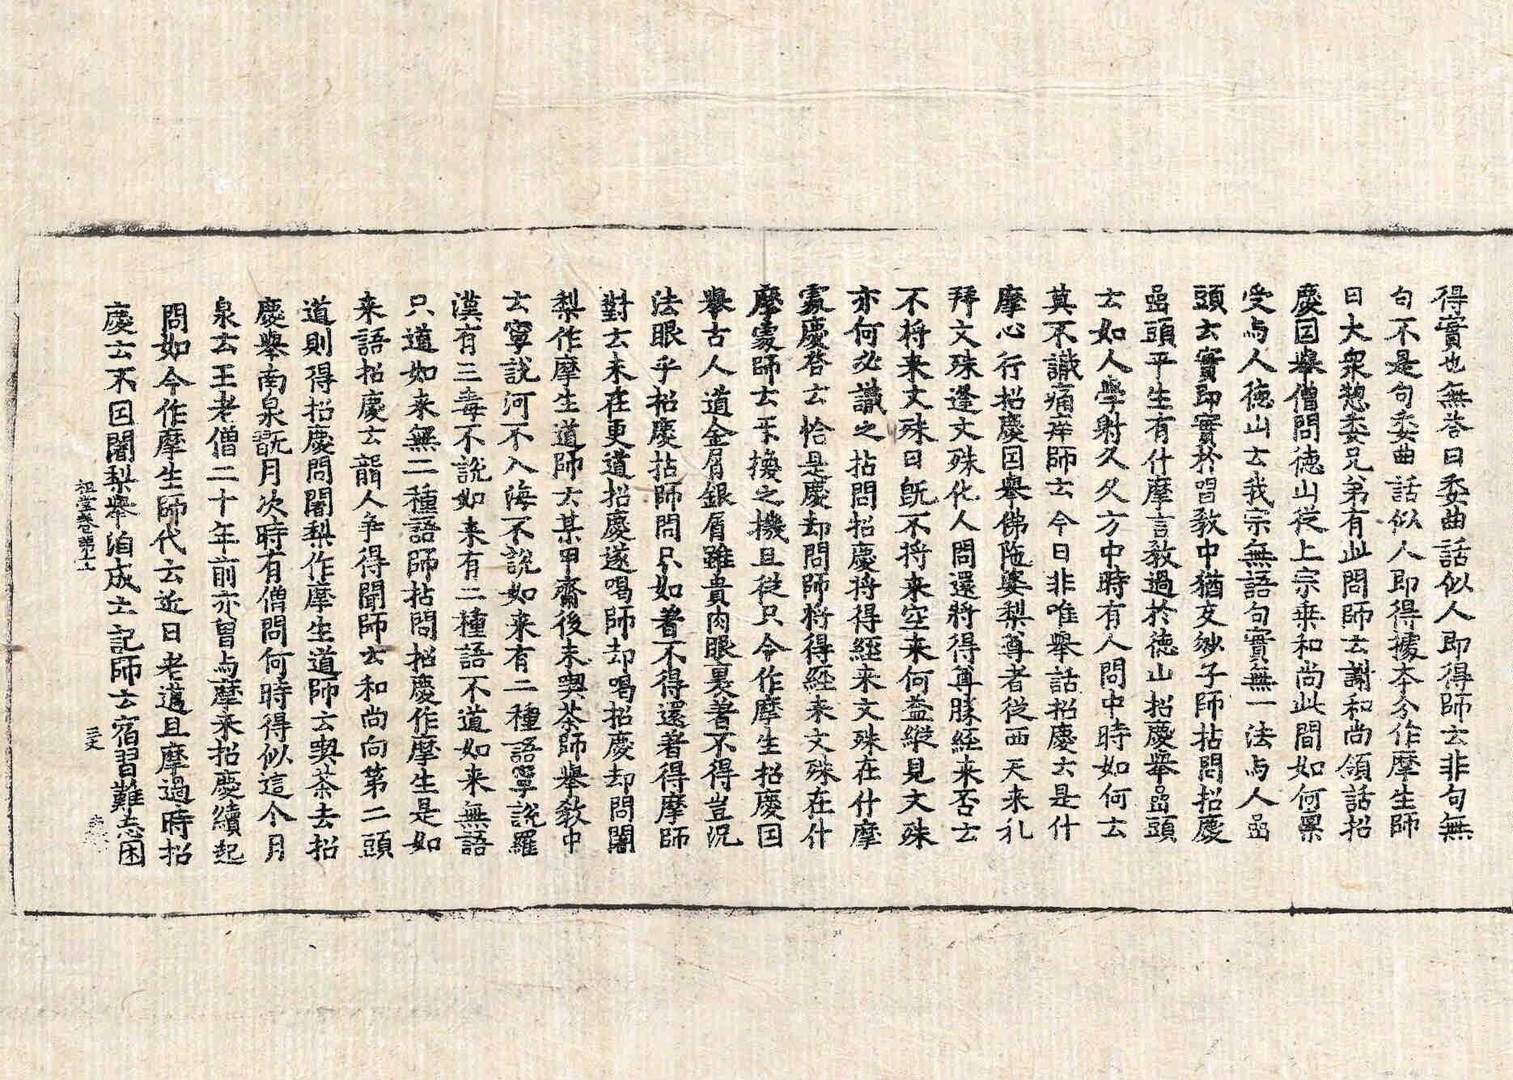 得實也無答曰委曲話似人即得師云非句無
句不是句委曲話似人即得據本分作摩生師
曰大衆惣委兄弟有此問師云謝和尚領話招
慶因舉僧問德山從上宗乘和尚此間如何稟
受与人德山云我宗無語句實無一法与人嵒
頭云實即實於唱教中猶交些子師拈問招慶
嵒頭平生有什摩言教過於德山招慶舉嵒頭
云如人學射久久方中時有人問中時如何云
莫不識痛痒師云今日非唯舉話招慶云是什
摩心行招慶因舉佛陁婆梨尊者從西天來礼
拜文殊逢文殊化人問還將得尊勝經來否云
不將來文殊曰旣不將來空來何益縱見文殊
亦何必識之拈問招慶將得經來文殊在什摩
處慶答云恰是慶却問師將得經來文殊在什
摩處師云不換之機且從只今作摩生招慶因
舉古人道金屑銀屑雖貴肉眼裏著不得豈況
法眼乎招慶拈師問只如著不得還著得摩師
對云未在更道招慶遂喝師却喝招慶却問闍
梨作摩生道師云某甲齋後未喫茶師舉教中
云寧說阿不入海不說如來有二種語寧說羅
漢有三毒不說如來有二種語不道如來無語
只道如來無二種語師拈問招慶作摩生是如
来語招慶云聾人爭得聞師云和尚向第二頭
道則得招慶問闍梨作摩生道師云喫茶去招
慶舉南泉翫月次時有僧問何時得似這今月
泉云王老僧二十年前亦曾与摩來招慶續起
問如今作摩生師代云近日老邁且摩過時招
慶云不因闍梨舉洎成亡記師云宿習難忘因
祖堂卷第十一 三丈